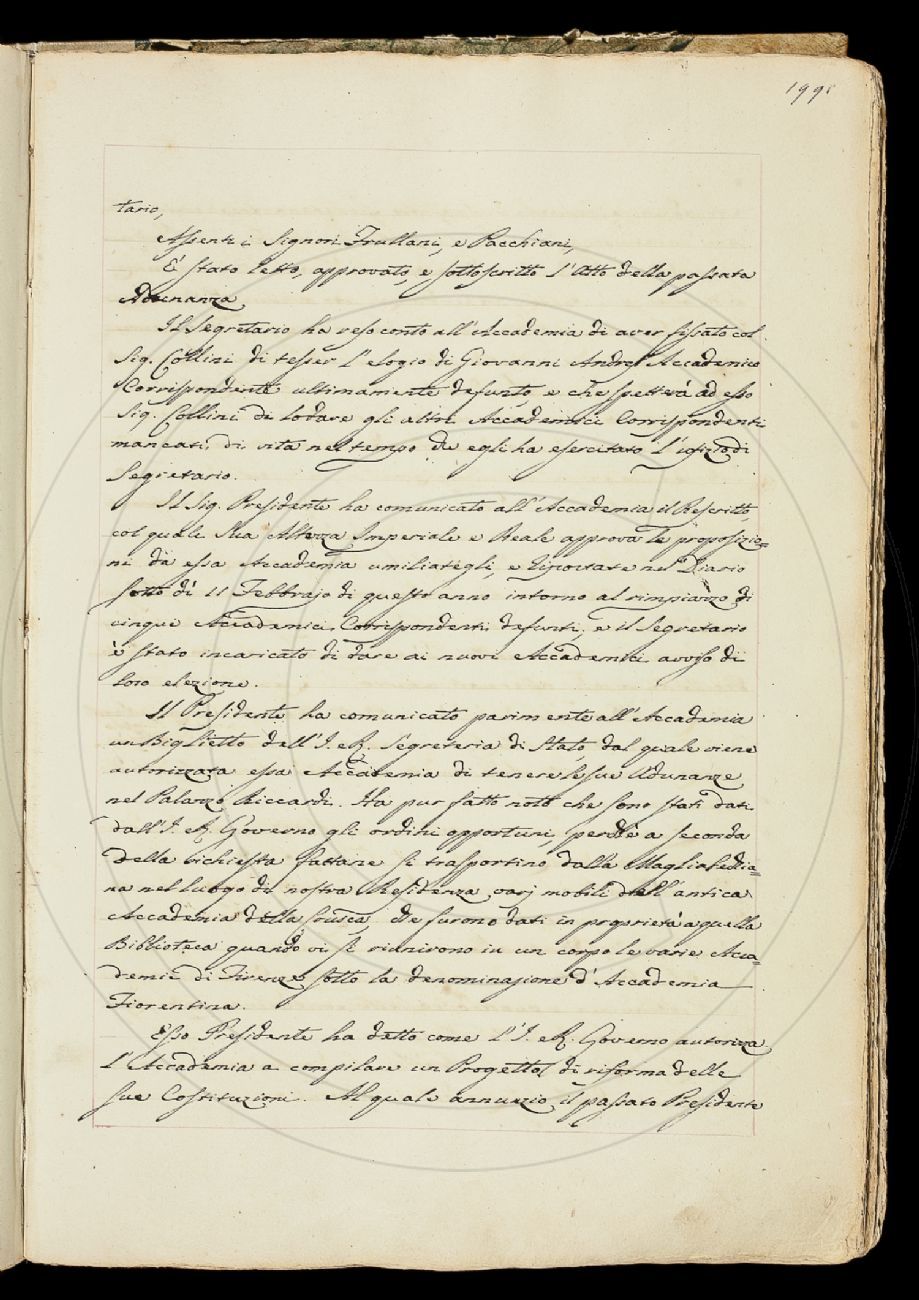 199
tario,
Assenti i Signori Frullani, e Pacchiani,
È stato letto, approvato, e sottoscritto l'Atto della passata
Adunanza
Il Segretario ha reso conto all'Accademia di aver fissato col
Sig. Collini di tesser l'elogio di Giovanni Andres Accademico
Corrispondente ultimamente defunto, e che spetterà ad esso
Sig. Collini di lodare gli altri Accademici Corrispondenti
mancati di vita nel tempo che egli ha esercitato l'ufizio di
Segretario.
Il Sig. Presidente ha comunicato all'Accademia il Rescritto,
col quale Sua Altezza Imperiale e Reale approva le proposizio=
ni da essa Accademia umiliategli, e riportate nel Diario
sotto dì 11 Febbrajo di questo anno intorno al rimpiazzo di
cinque Accademici Corrispondenti defunti, e il Segretario
è stato incaricato di dare ai nuovi Accademici avviso di
loro elezione.
Il Presidente ha comunicato parimente all'Accademia
un Biglietto dell'I. e R. Segreteria di Stato, dal quale viene
autorizzata essa Accademia di tenere le sue Adunanze
nel Palazzo Riccardi. Ha pur fatto noto che sono stati dati
dall'I. e R. Governo gli ordini opportuni, perchè a seconda
della richiesta fattane si trasportino dalla Magliabechia=
na nel luogo di nostra Residenza varj mobili dell'antica
Accademia della Crusca, che furono dati in proprietà a quella
Biblioteca quando vi si riunirono in un corpo le varie Acca=
demie di Firenze sotto la denominazione d'Accademia
Fiorentina.
Esso Presidente ha detto come l'I. e R. Governo autorizza
l'Accademia a compilare un Progetto di riforma delle
sue Costituzioni. Al quale annunzio il passato Presidente